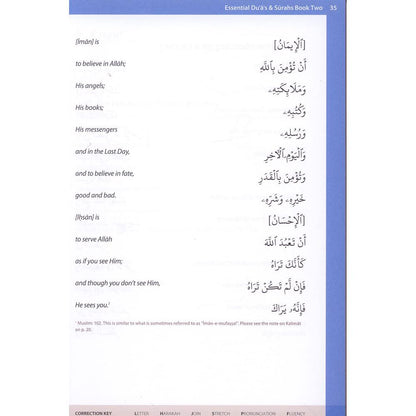 Essential Du'ā's & Sūrahs Book Two 35
[Īmān] is [اَلْإِيمَانُ]
to believe in Allāh; أَنْ تُؤْمِنَ بِاللَّهِ
His angels; وَمَلَائِكَتِهِ
His books; وَكُتُبِهِ
His messengers وَرُسُلِهِ
and in the Last Day, وَالْيَوْمِ الْآخِرِ
and to believe in fate, وَتُؤْمِنَ بِالْقَدَرِ
good and bad. خَيْرِهِ وَشَرِّهِ
[Iḥsān] is [اَلْإِحْسَانُ]
to serve Allāh أَنْ تَعْبُدَ اللَّهَ
as if you see Him; كَأَنَّكَ تَرَاهُ
and though you don't see Him, فَإِنْ لَّمْ تَكُنْ تَرَاهُ
He sees you.¹ فَإِنَّهُ يَرَاكَ
¹ Muslim: 102. This is similar to what is sometimes referred to as "Īmān-e-mufaṣṣal". Please see the note on Kalimāt
on p. 20.
CORRECTION KEY LETTER HARAKAH JOIN STRETCH PRONUNCIATION FLUENCY